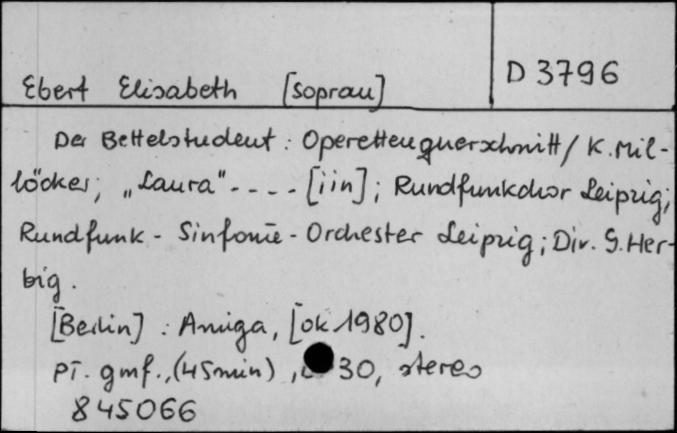 Ebert Elisabeth [sopran]
D 3796
Der Bettelstudent : Operettenquerschnitt / K. Mil-
löcker; „Laura" - - - - [iin]; Rundfunkchor Leipzig;
Rundfunk - Sinfonie - Orchester Leipzig; Dir. G. Her-
big.
[Berlin] : Amiga, [ok 1980].
pł. gmf., (45min), 30, stereo
845066